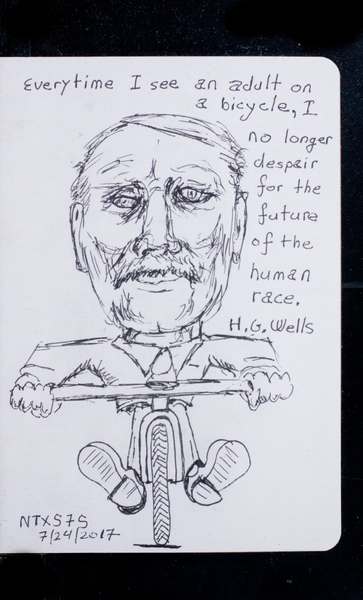 Everytime I see an adult on
a bicycle, I
no longer
despair
for the
future
of the
human
race.
H.G. Wells
NTXS7S
7/24/2017